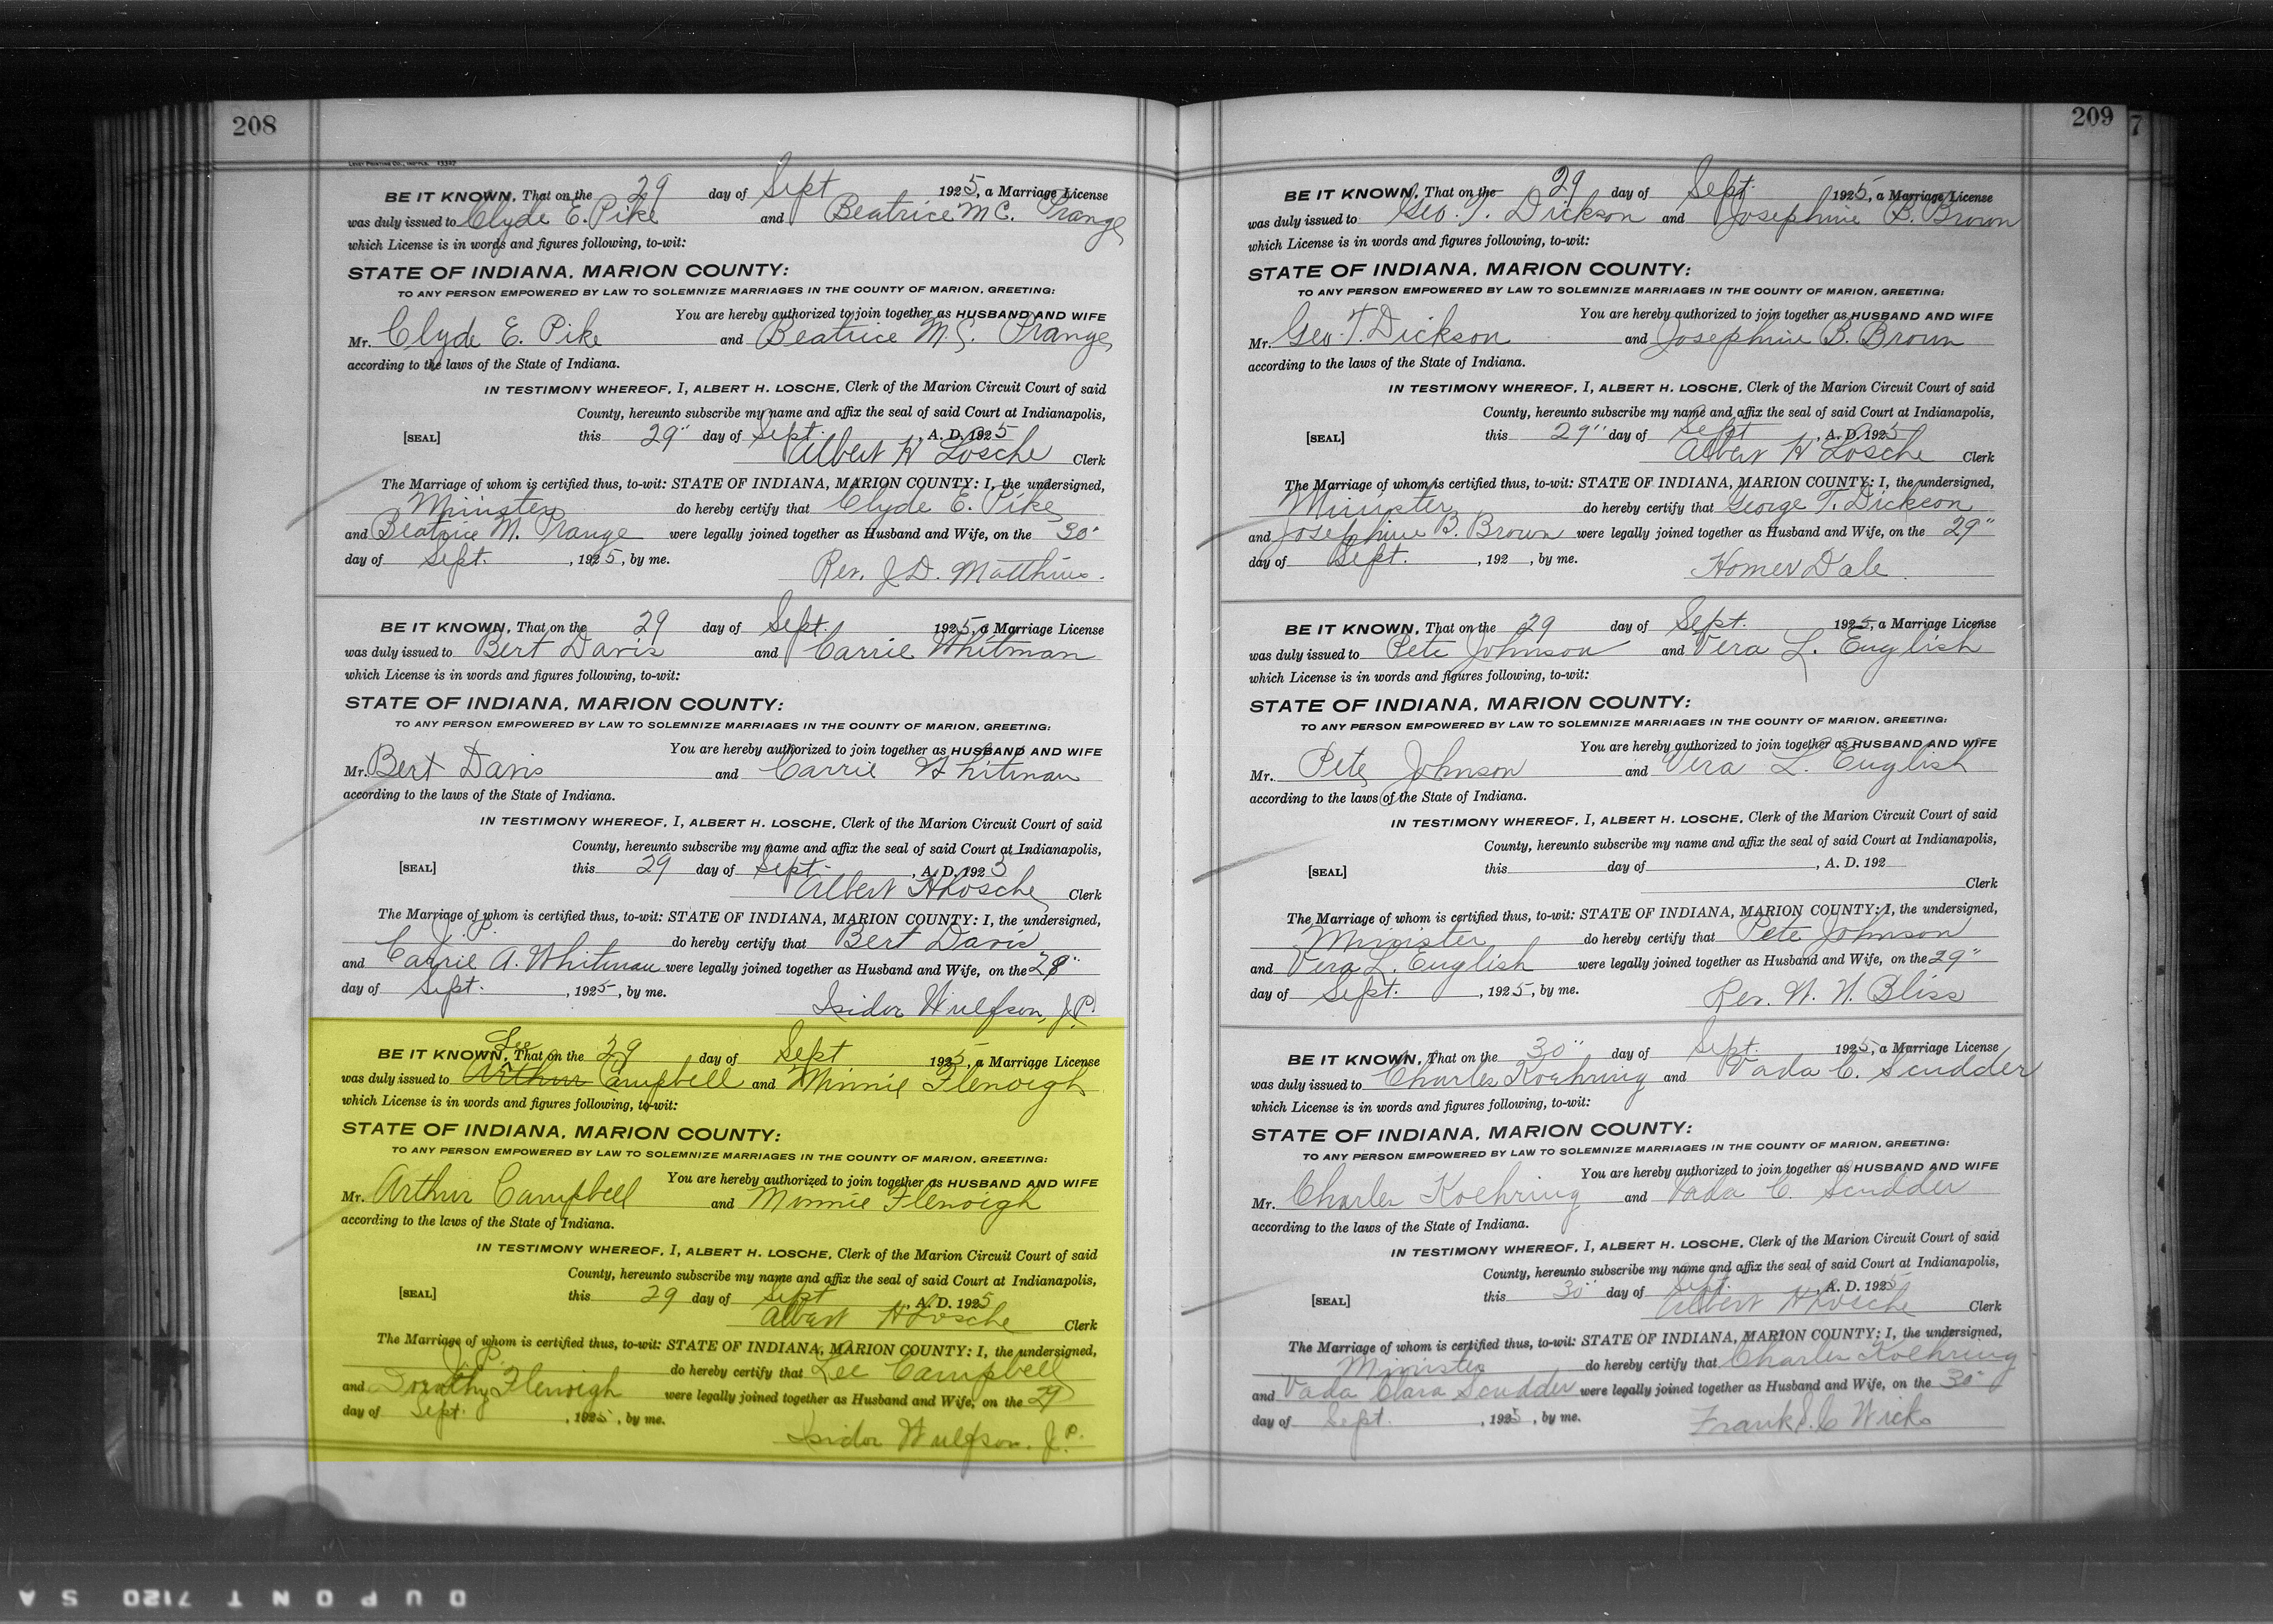 208
LEVEY PRINTING CO., IND'PLS. 13327
BE IT KNOWN, That on the 29 day of Sept 1925, a Marriage License
was duly issued to Clyde E. Pike and Beatrice M C. Prange
which License is in words and figures following, to-wit:
STATE OF INDIANA, MARION COUNTY:
TO ANY PERSON EMPOWERED BY LAW TO SOLEMNIZE MARRIAGES IN THE COUNTY OF MARION, GREETING:
You are hereby authorized to join together as HUSBAND AND WIFE
Mr. Clyde E. Pike and Beatrice M. C. Prange
according to the laws of the State of Indiana.
IN TESTIMONY WHEREOF, I, ALBERT H. LOSCHE, Clerk of the Marion Circuit Court of said
County, hereunto subscribe my name and affix the seal of said Court at Indianapolis,
[SEAL] this 29" day of Sept. , A. D. 1925
Albert H Losche Clerk
The Marriage of whom is certified thus, to-wit: STATE OF INDIANA, MARION COUNTY: I, the undersigned,
Minister do hereby certify that Clyde E. Pike
and Beatrice M. Prange were legally joined together as Husband and Wife, on the 30"
day of Sept. , 1925, by me.
Rev. J. D. Matthius.
BE IT KNOWN, That on the 29 day of Sept. 1925, a Marriage License
was duly issued to Bert Davis and Carrie Whitman
which License is in words and figures following, to-wit:
STATE OF INDIANA, MARION COUNTY:
TO ANY PERSON EMPOWERED BY LAW TO SOLEMNIZE MARRIAGES IN THE COUNTY OF MARION, GREETING:
You are hereby authorized to join together as HUSBAND AND WIFE
Mr. Bert Davis and Carrie Whitman
according to the laws of the State of Indiana.
IN TESTIMONY WHEREOF, I, ALBERT H. LOSCHE, Clerk of the Marion Circuit Court of said
County, hereunto subscribe my name and affix the seal of said Court at Indianapolis,
[SEAL] this 29 day of Sept. , A. D. 1925
Albert H Losche Clerk
The Marriage of whom is certified thus, to-wit: STATE OF INDIANA, MARION COUNTY: I, the undersigned,
J. P. do hereby certify that Bert Davis
and Carrie A. Whitman were legally joined together as Husband and Wife, on the 29"
day of Sept. , 1925, by me.
Isidor Wulfson, J.P.
Lee
BE IT KNOWN, That on the 29 day of Sept 1925, a Marriage License
was duly issued to Arthur Campbell and Minnie Flenoigh
which License is in words and figures following, to-wit:
STATE OF INDIANA, MARION COUNTY:
TO ANY PERSON EMPOWERED BY LAW TO SOLEMNIZE MARRIAGES IN THE COUNTY OF MARION, GREETING:
You are hereby authorized to join together as HUSBAND AND WIFE
Mr. Arthur Campbell and Minnie Flenoigh
according to the laws of the State of Indiana.
IN TESTIMONY WHEREOF, I, ALBERT H. LOSCHE, Clerk of the Marion Circuit Court of said
County, hereunto subscribe my name and affix the seal of said Court at Indianapolis,
[SEAL] this 29 day of Sept , A. D. 1925
Albert H Losche Clerk
The Marriage of whom is certified thus, to-wit: STATE OF INDIANA, MARION COUNTY: I, the undersigned,
J. P. do hereby certify that Lee Campbell
and Dorothy Flenoigh were legally joined together as Husband and Wife, on the 29
day of Sept. , 1925, by me.
Isidor Wulfson. J.P.
209
7
BE IT KNOWN, That on the 29 day of Sept. 1925, a Marriage License
was duly issued to Geo. T. Dickson and Josephine B. Brown
which License is in words and figures following, to-wit:
STATE OF INDIANA, MARION COUNTY:
TO ANY PERSON EMPOWERED BY LAW TO SOLEMNIZE MARRIAGES IN THE COUNTY OF MARION, GREETING:
You are hereby authorized to join together as HUSBAND AND WIFE
Mr. Geo. T. Dickson and Josephine B. Brown
according to the laws of the State of Indiana.
IN TESTIMONY WHEREOF, I, ALBERT H. LOSCHE, Clerk of the Marion Circuit Court of said
County, hereunto subscribe my name and affix the seal of said Court at Indianapolis,
[SEAL] this 29" day of Sept , A. D. 1925
Albert H Losche Clerk
The Marriage of whom is certified thus, to-wit: STATE OF INDIANA, MARION COUNTY: I, the undersigned,
Minister do hereby certify that George T. Dickson
and Josephine B. Brown were legally joined together as Husband and Wife, on the 29"
day of Sept. , 192 , by me.
Homer Dale
BE IT KNOWN, That on the 29 day of Sept. 1925, a Marriage License
was duly issued to Pete Johnson and Vera L. English
which License is in words and figures following, to-wit:
STATE OF INDIANA, MARION COUNTY:
TO ANY PERSON EMPOWERED BY LAW TO SOLEMNIZE MARRIAGES IN THE COUNTY OF MARION, GREETING:
You are hereby authorized to join together as HUSBAND AND WIFE
Mr. Pete Johnson and Vera L. English
according to the laws of the State of Indiana.
IN TESTIMONY WHEREOF, I, ALBERT H. LOSCHE, Clerk of the Marion Circuit Court of said
County, hereunto subscribe my name and affix the seal of said Court at Indianapolis,
[SEAL] this day of , A. D. 192
Clerk
The Marriage of whom is certified thus, to-wit: STATE OF INDIANA, MARION COUNTY: I, the undersigned,
Minister do hereby certify that Pete Johnson
and Vera L. English were legally joined together as Husband and Wife, on the 29"
day of Sept. , 1925, by me.
Rev. W. W. Bliss
BE IT KNOWN, That on the 30" day of Sept. 1925, a Marriage License
was duly issued to Charles Koehring and Vada C. Scudder
which License is in words and figures following, to-wit:
STATE OF INDIANA, MARION COUNTY:
TO ANY PERSON EMPOWERED BY LAW TO SOLEMNIZE MARRIAGES IN THE COUNTY OF MARION, GREETING:
You are hereby authorized to join together as HUSBAND AND WIFE
Mr. Charles Koehring and Vada C. Scudder
according to the laws of the State of Indiana.
IN TESTIMONY WHEREOF, I, ALBERT H. LOSCHE, Clerk of the Marion Circuit Court of said
County, hereunto subscribe my name and affix the seal of said Court at Indianapolis,
[SEAL] this 30" day of Sept. , A. D. 1925
Albert H Losche Clerk
The Marriage of whom is certified thus, to-wit: STATE OF INDIANA, MARION COUNTY: I, the undersigned,
Minister do hereby certify that Charles Koehring
and Vada Clara Scudder were legally joined together as Husband and Wife, on the 30"
day of Sept. , 1925, by me.
Frank S. C Wicks
DUPONT 7120 SA